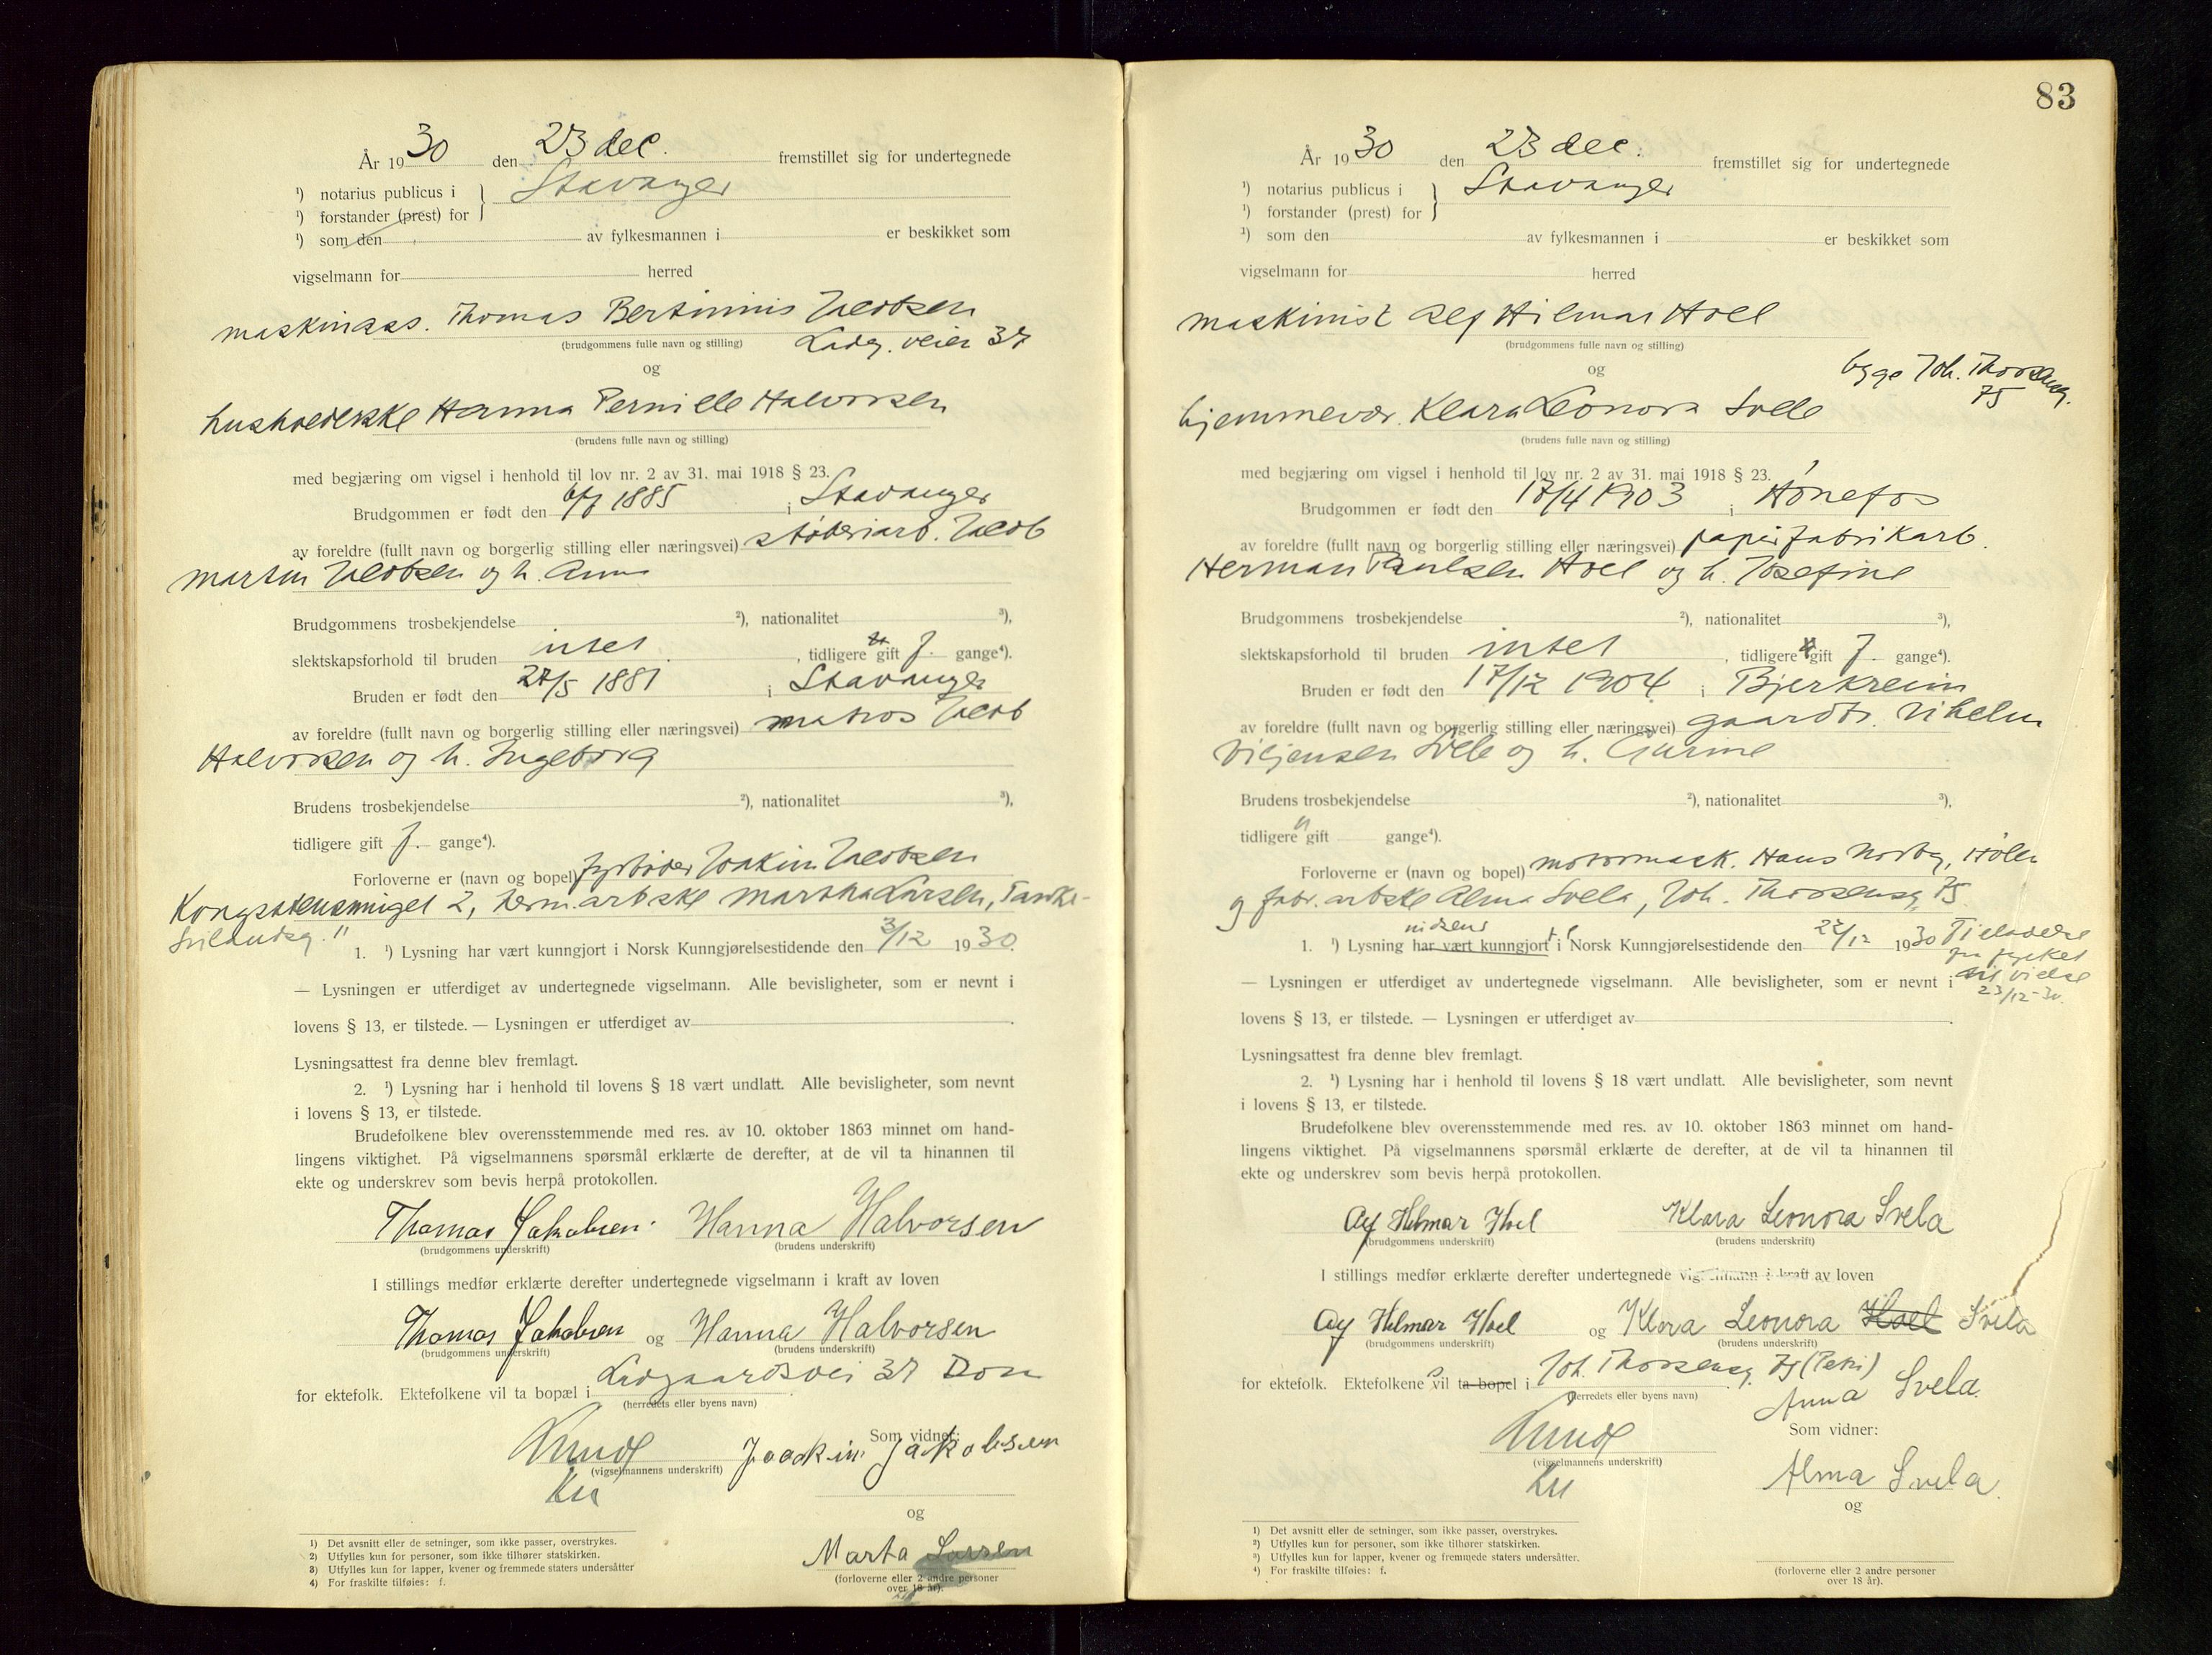 År 1930 den 23 dec. fremstillet sig for undertegnede
¹) notarius publicus i } Stavanger
¹) forstander (prest) for
¹) som den av fylkesmannen i er beskikket som
vigselmann for herred
maskinass. Thomas Bertinius Jacobsen
(brudgommens fulle navn og stilling) Ladg. veien 37
og
husholderske Hanna Pernille Halvorsen
(brudens fulle navn og stilling)
med begjæring om vigsel i henhold til lov nr. 2 av 31. mai 1918 § 23.
Brudgommen er født den 1885 i Stavanger
av foreldre (fullt navn og borgerlig stilling eller næringsvei) støberiarb. Jacob
Martin Jacobsen og h. Anna
Brudgommens trosbekjendelse ²), nationalitet ³),
slektskapsforhold til bruden intet, tidligere gift f. gange⁴).
Bruden er født den 27/5 1881 i Stavanger
av foreldre (fullt navn og borgerlig stilling eller næringsvei) matros Jacob
Halvorsen og h. Ingeborg
Brudens trosbekjendelse ²), nationalitet ³),
tidligere gift f. gange⁴).
Forloverne er (navn og bopel) fyrbøder Joakim Jacobsen
Kongsteensmuget 2, herm.arbske Martha Larsen, Tanke-
Svilandsg. 11
1. ¹) Lysning har vært kunngjort i Norsk Kunngjørelsestidende den 3/12 1930.
— Lysningen er utferdiget av undertegnede vigselmann. Alle bevisligheter, som er nevnt i
lovens § 13, er tilstede. — Lysningen er utferdiget av
Lysningsattest fra denne blev fremlagt.
2. ¹) Lysning har i henhold til lovens § 18 vært undlatt. Alle bevisligheter, som nevnt
i lovens § 13, er tilstede.
Brudefolkene blev overensstemmende med res. av 10. oktober 1863 minnet om hand-
lingens viktighet. På vigselmannens spørsmål erklærte de derefter, at de vil ta hinannen til
ekte og underskrev som bevis herpå protokollen.
Thomas Jakobsen. Hanna Halvorsen
(brudgommens underskrift) (brudens underskrift)
I stillings medfør erklærte derefter undertegnede vigselmann i kraft av loven
Thomas Jakobsen og Hanna Halvorsen
(brudgommens underskrift) (brudens underskrift)
for ektefolk. Ektefolkene vil ta bopæl i Ladgaardsvei 37
(herredets eller byens navn)
Som vidner:
Joackim Jackobsen
(vigselmannens underskrift)
og
Marta Larsen
(forloverne eller 2 andre personer
over 18 år).
1) Det avsnitt eller de setninger, som ikke passer, overstrykes.
2) Utfylles kun for personer, som ikke tilhører statskirken.
3) Utfylles kun for lapper, kvener og fremmede staters undersåtter
4) For fraskilte tilføies: f.
83
År 1930 den 23 dec. fremstillet sig for undertegnede
¹) notarius publicus i } Stavanger
¹) forstander (prest) for
¹) som den av fylkesmannen i er beskikket som
vigselmann for herred
maskinist Alf Hilmar Hoel
(brudgommens fulle navn og stilling)
og begge Joh. Thorsensg. 75
hjemmevær. Klara Leonora Svele
(brudens fulle navn og stilling)
med begjæring om vigsel i henhold til lov nr. 2 av 31. mai 1918 § 23.
Brudgommen er født den 17/4 1903 i Hønefos
av foreldre (fullt navn og borgerlig stilling eller næringsvei) papirfabrikarb.
Herman Paulsen Hoel og h. Josefine
Brudgommens trosbekjendelse ²), nationalitet ³),
slektskapsforhold til bruden intet, tidligere gift f. gange⁴).
Bruden er født den 17/12 1904 i Bjerkreim
av foreldre (fullt navn og borgerlig stilling eller næringsvei) gaardbr. Vilhelm
Viljensen Svele og h. Gurine
Brudens trosbekjendelse ²), nationalitet ³),
tidligere gift gange⁴).
Forloverne er (navn og bopel) motormask. Hans Norby, Hølen
og fabr.arbske Alma Svela, Joh. Thorsensg. 75
1. ¹) Lysning har vært kunngjort i Norsk Kunngjørelsestidende den 22/12 1930 Tilladelse
fra fylket
til vielse
23/12-30.
— Lysningen er utferdiget av undertegnede vigselmann. Alle bevisligheter, som er nevnt i
lovens § 13, er tilstede. — Lysningen er utferdiget av
Lysningsattest fra denne blev fremlagt.
2. ¹) Lysning har i henhold til lovens § 18 vært undlatt. Alle bevisligheter, som nevnt
i lovens § 13, er tilstede.
Brudefolkene blev overensstemmende med res. av 10. oktober 1863 minnet om hand-
lingens viktighet. På vigselmannens spørsmål erklærte de derefter, at de vil ta hinannen til
ekte og underskrev som bevis herpå protokollen.
Alf Hilmar Hoel Klara Leonora Svela
(brudgommens underskrift) (brudens underskrift)
I stillings medfør erklærte derefter undertegnede vigselmann i kraft av loven
Alf Hilmar Hoel og Klara Leonora Hoel Svela
(brudgommens underskrift) (brudens underskrift)
for ektefolk. Ektefolkenes vil ta bopel i Joh. Thorsensg. 75
(herredets eller byens navn)
Anna Svela
Som vidner:
(vigselmannens underskrift)
Alma Svela
og
(forloverne eller 2 andre personer
over 18 år).
¹) Det avsnitt eller de setninger, som ikke passer, overstrykes.
²) Utfylles kun for personer, som ikke tilhører statskirken.
³) Utfylles kun for lapper, kvener og fremmede staters undersåtter.
⁴) For fraskilte tilføies: f.